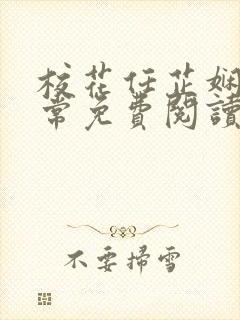 校花任芷嫻
常免費閱讀
不要掃雪